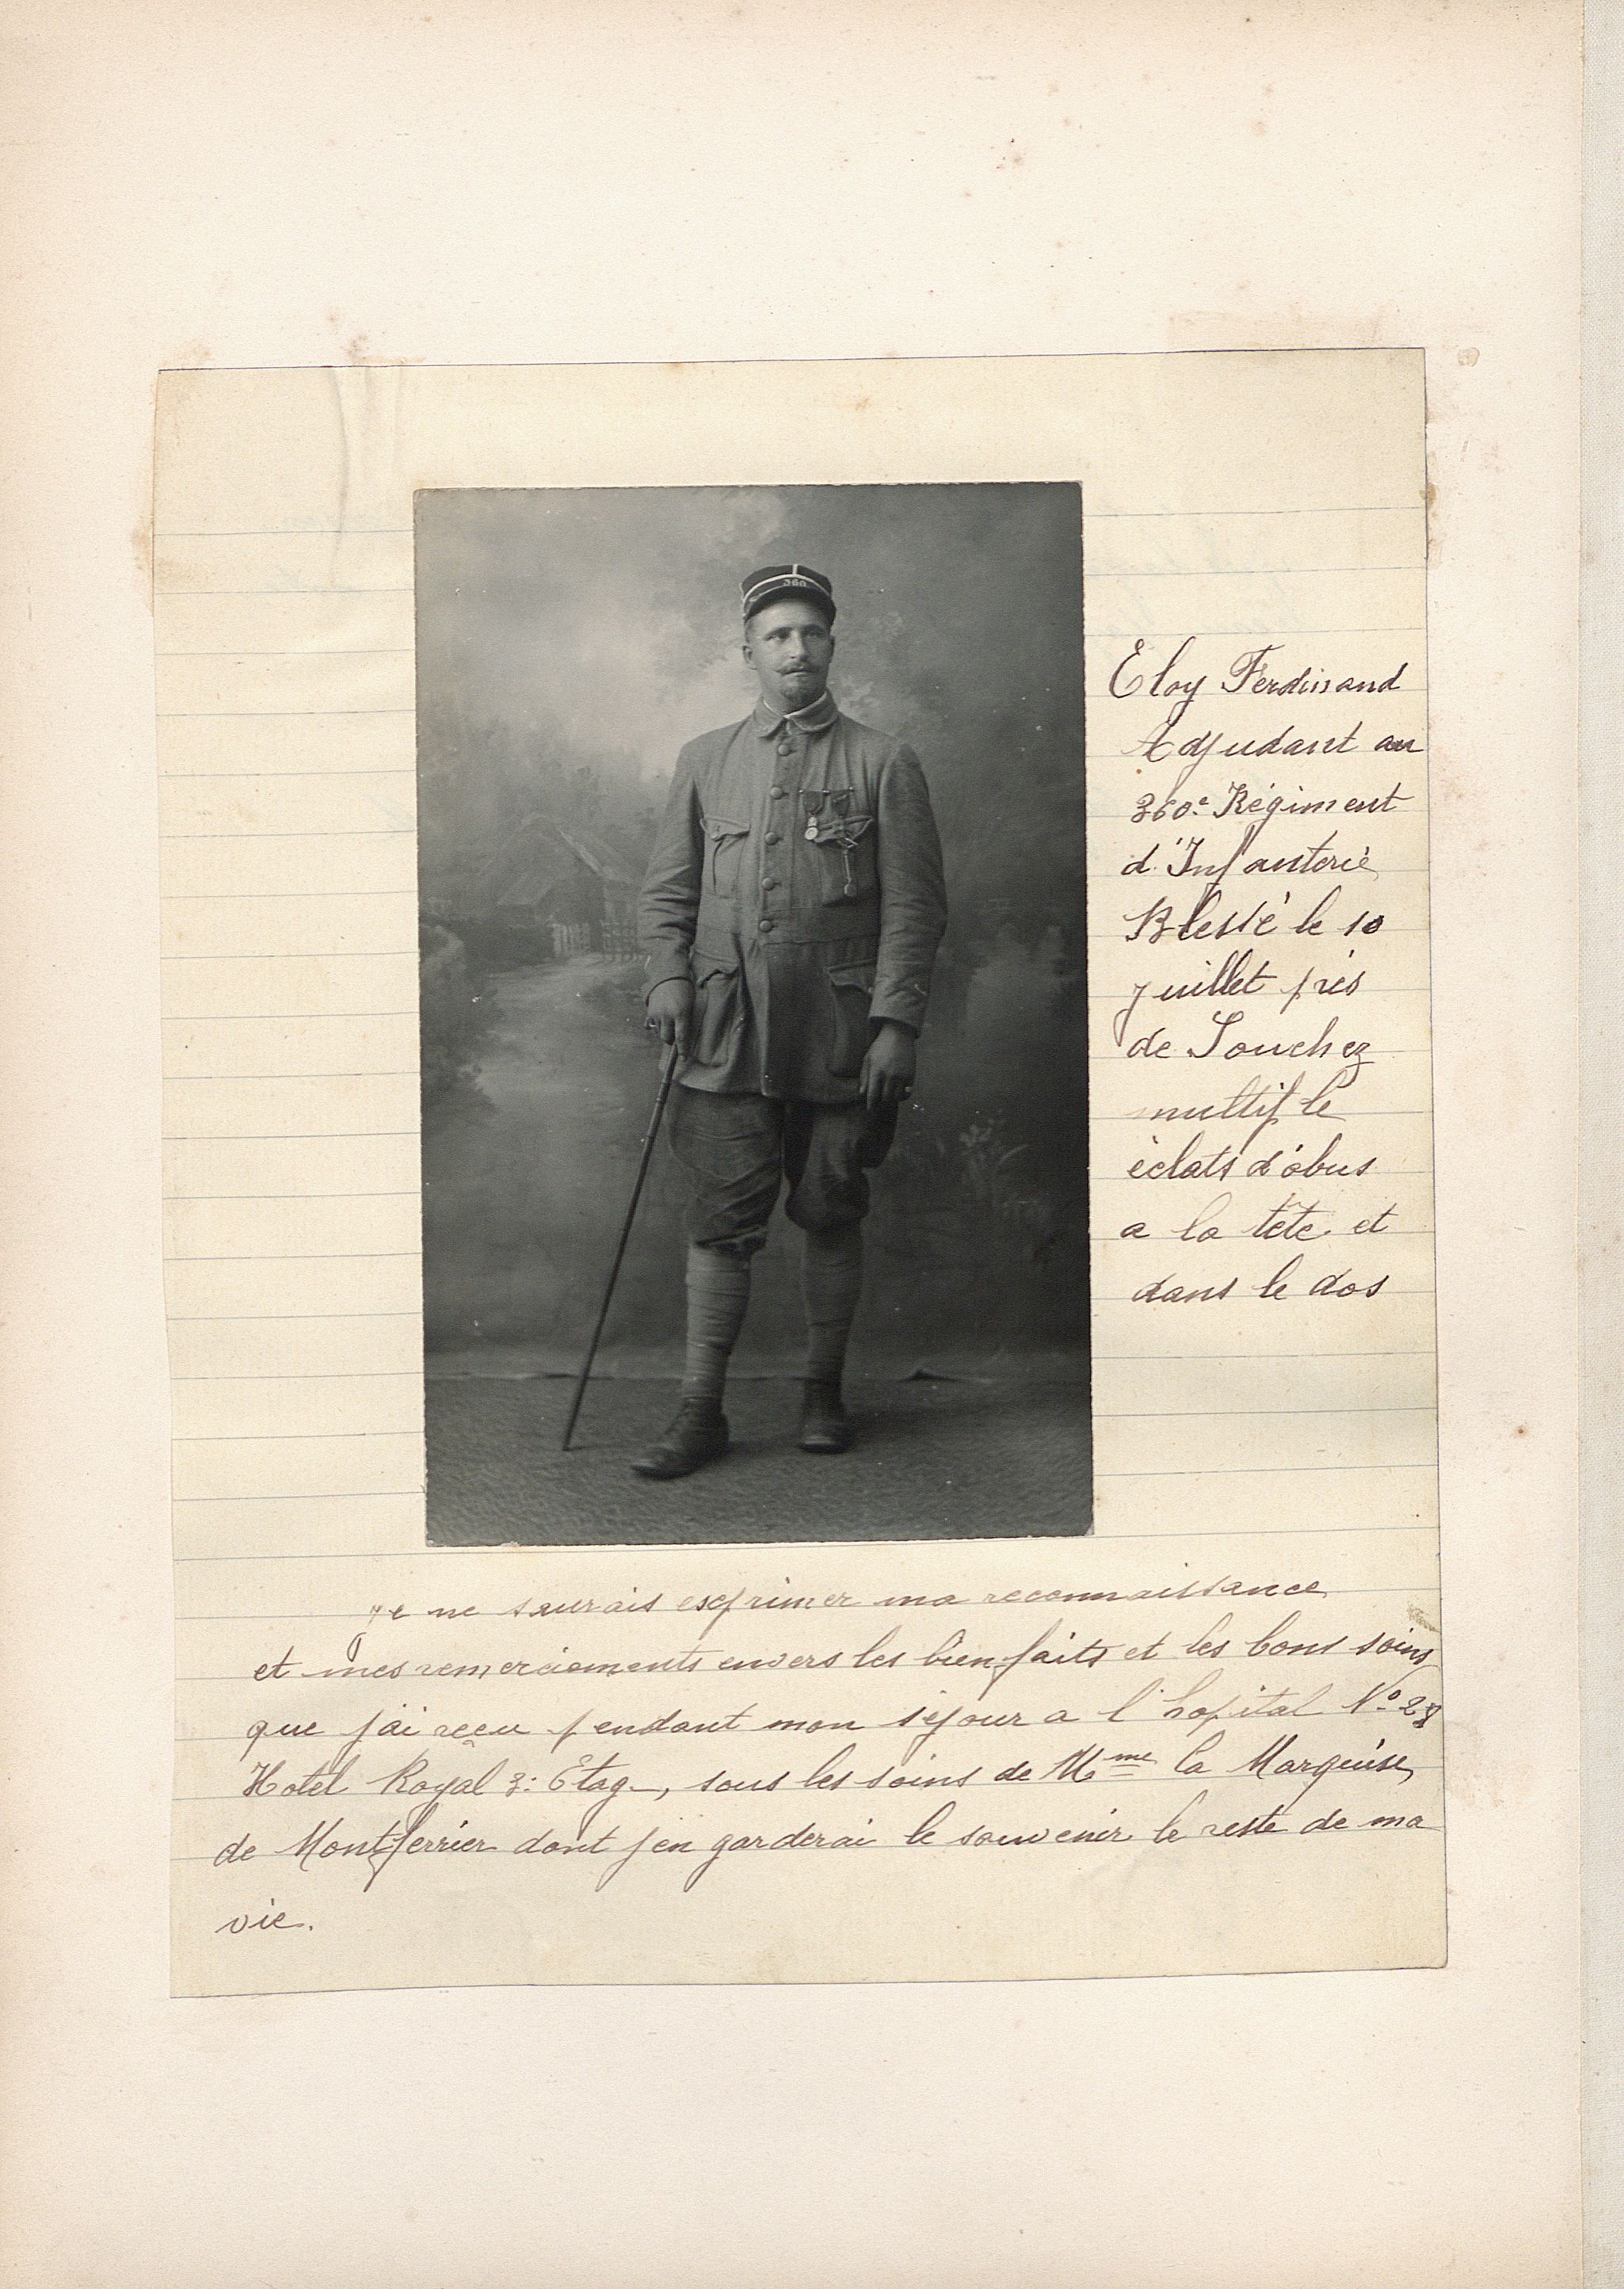 360
Eloy Ferdinand
Adjudant au
360e Régiment
d'Infanterie
Blessé le 10
juillet près
de Souchez
multiple
éclats d'obus
a la tête et
dans le dos
Je ne saurais exprimer ma reconnaissance
et mes remerciements envers les bienfaits et les bons soins
que j'ai reçu pendant mon séjour a l'hopital No 28
Hotel Royal 3e Etag., sous les soins de Mme la Marquise
de Montferrier dont j'en garderai le souvenir le reste de ma
vie.